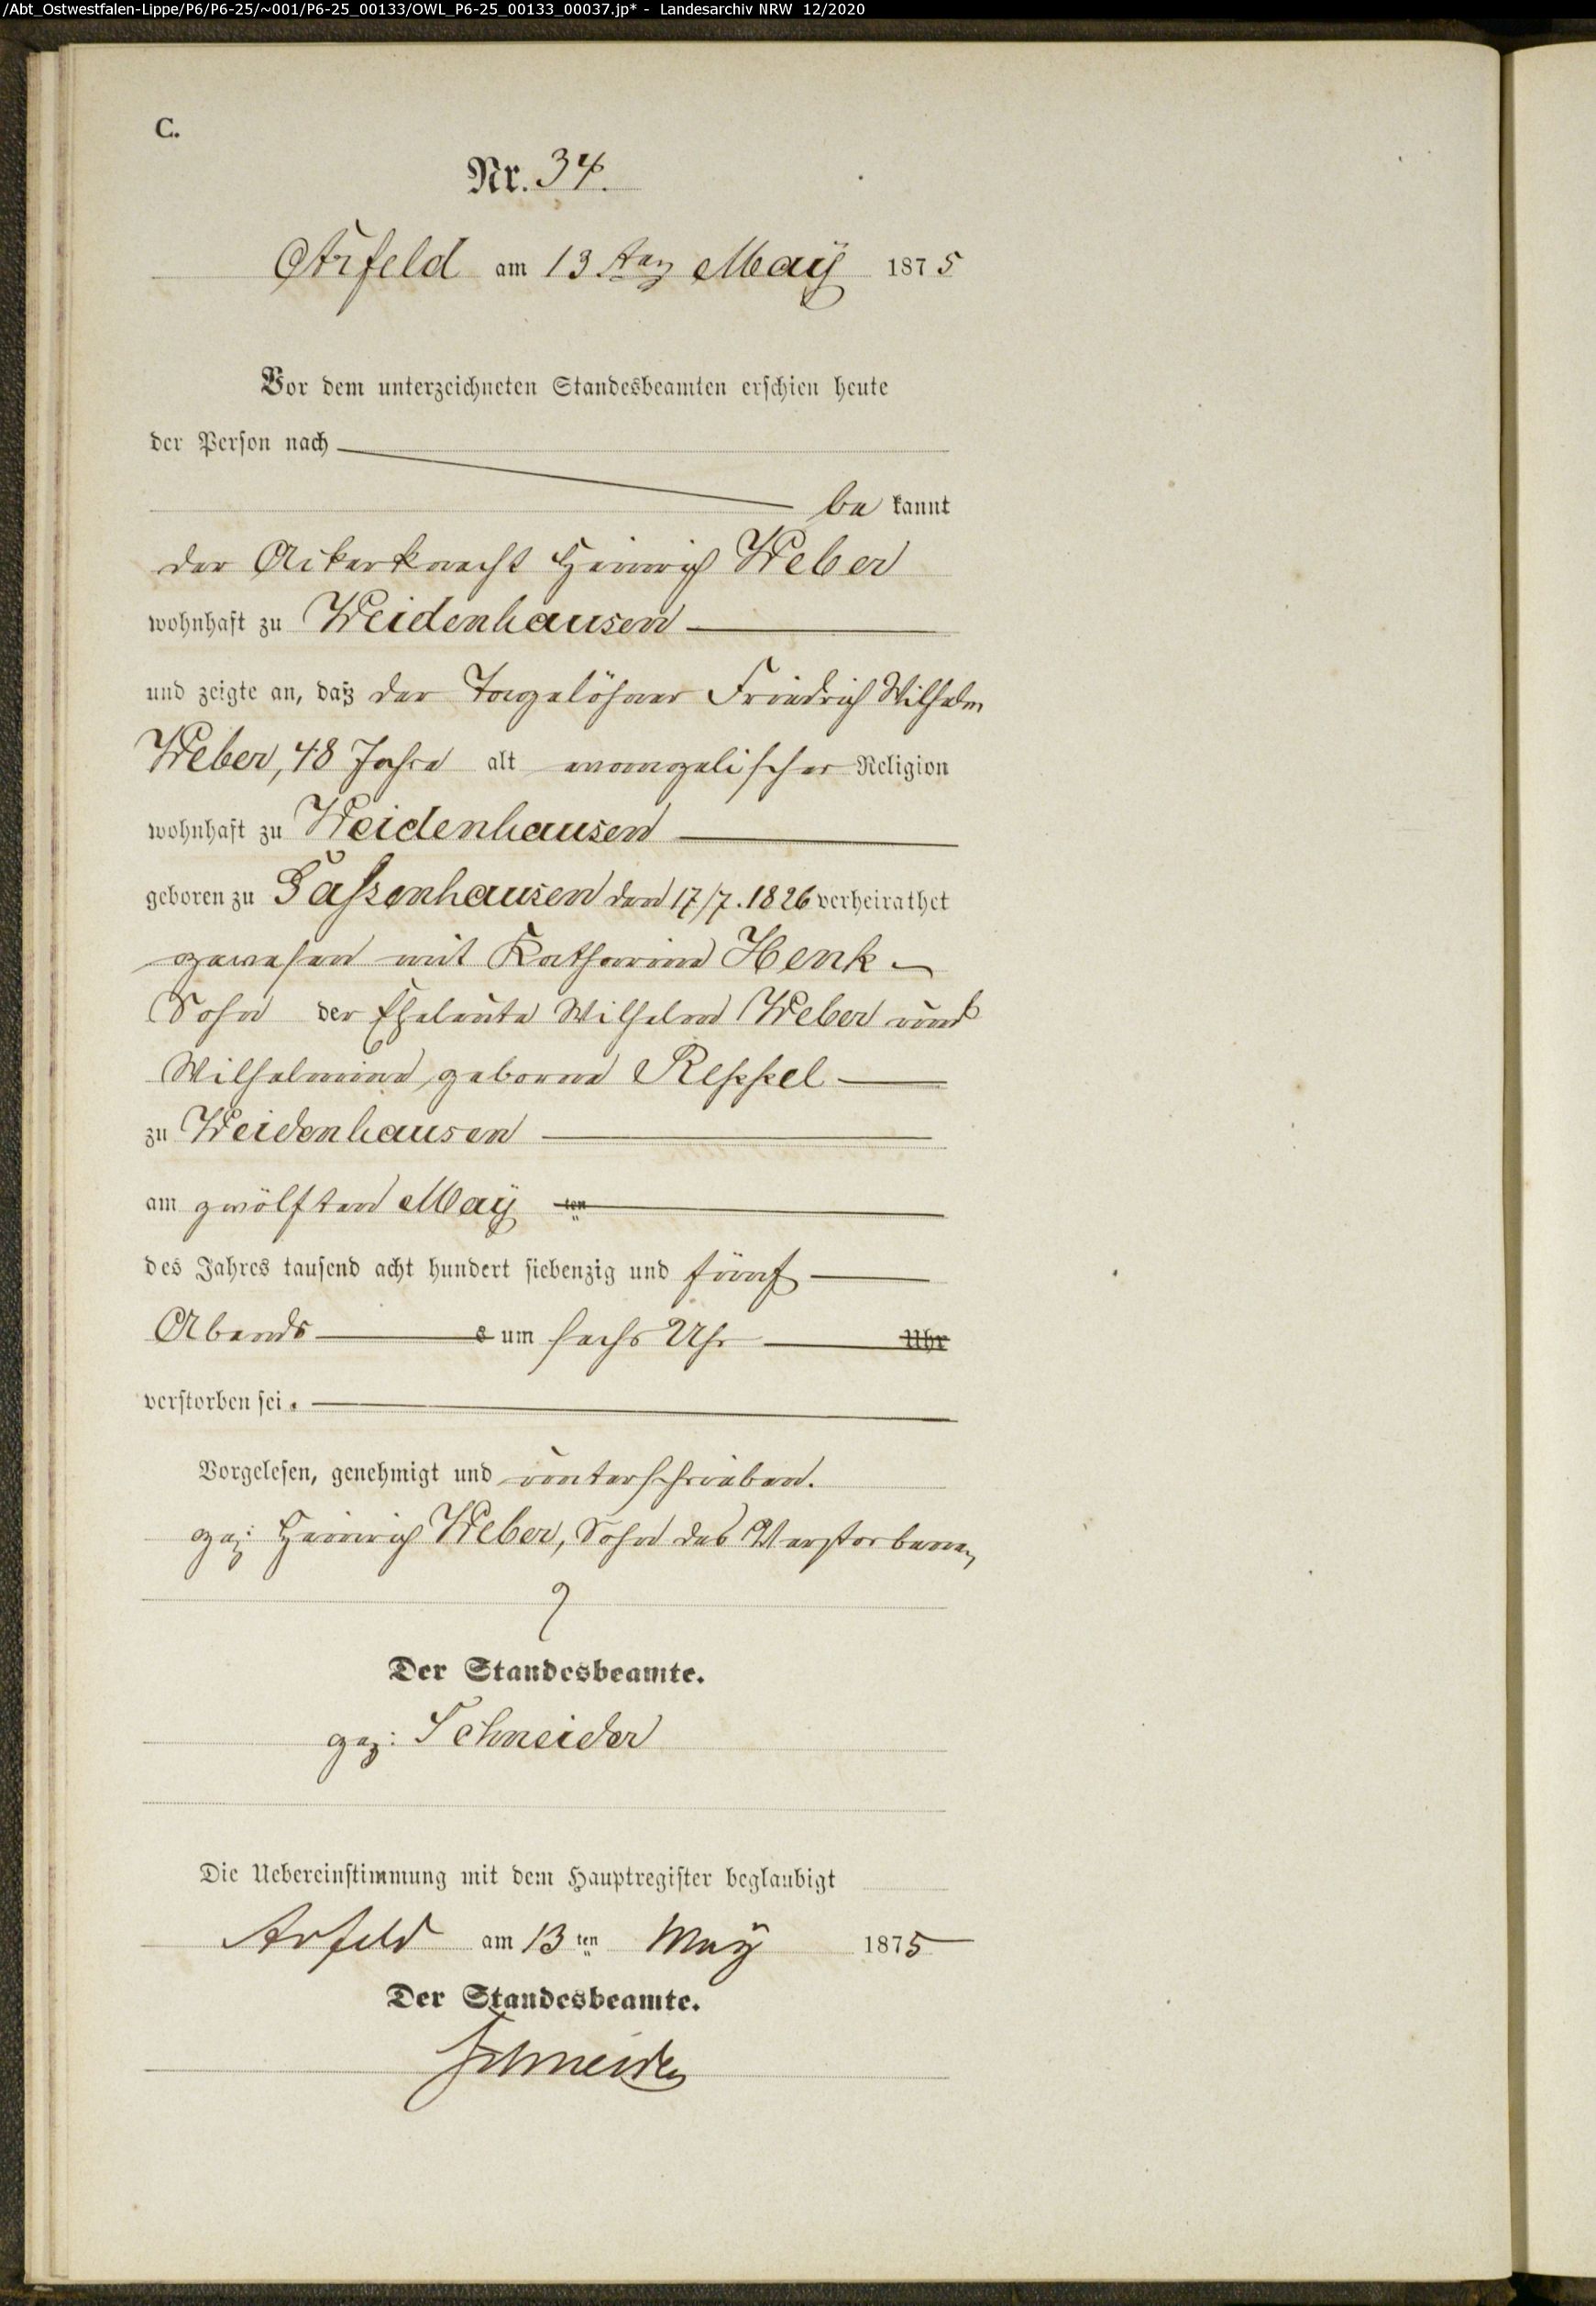 /Abt_Ostwestfalen-Lippe/P6/P6-25/~001/P6-25_00133/OWL_P6-25_00133_00037.jp* - Landesarchiv NRW 12/2020
C.
Nr. 34.
Arfeld am 13ten Maÿ 1875
Vor dem unterzeichneten Standesbeamten erschien heute
der Person nach
be kannt
der Ackerknecht Heinrich Weber
wohnhaft zu Weidenhausen
und zeigte an, daß der Tagelöhner Friedrich Wilhelm
Weber, 48 Jahre alt evangelischer Religion
wohnhaft zu Weidenhausen
geboren zu Sassenhausen den 17/7. 1826 verheirathet
gewesen mit Katharine Henk
Sohn der Eheleute Wilhelm Weber und
Wilhelmine, geborene
zu Weidenhausen
am zwölften Maÿ ten
des Jahres tausend acht hundert siebenzig und fünf
Abends s um sechs Uhr Uhr
verstorben sei.
Vorgelesen, genehmigt und unterschrieben.
gez: Heinrich Weber, Sohn des Verstorbenen
Der Standesbeamte.
gez: Schneider
Die Uebereinstimmung mit dem Hauptregister beglaubigt
Arfeld am 13 ten Maÿ 1875
Der Standesbeamte.
Schneider